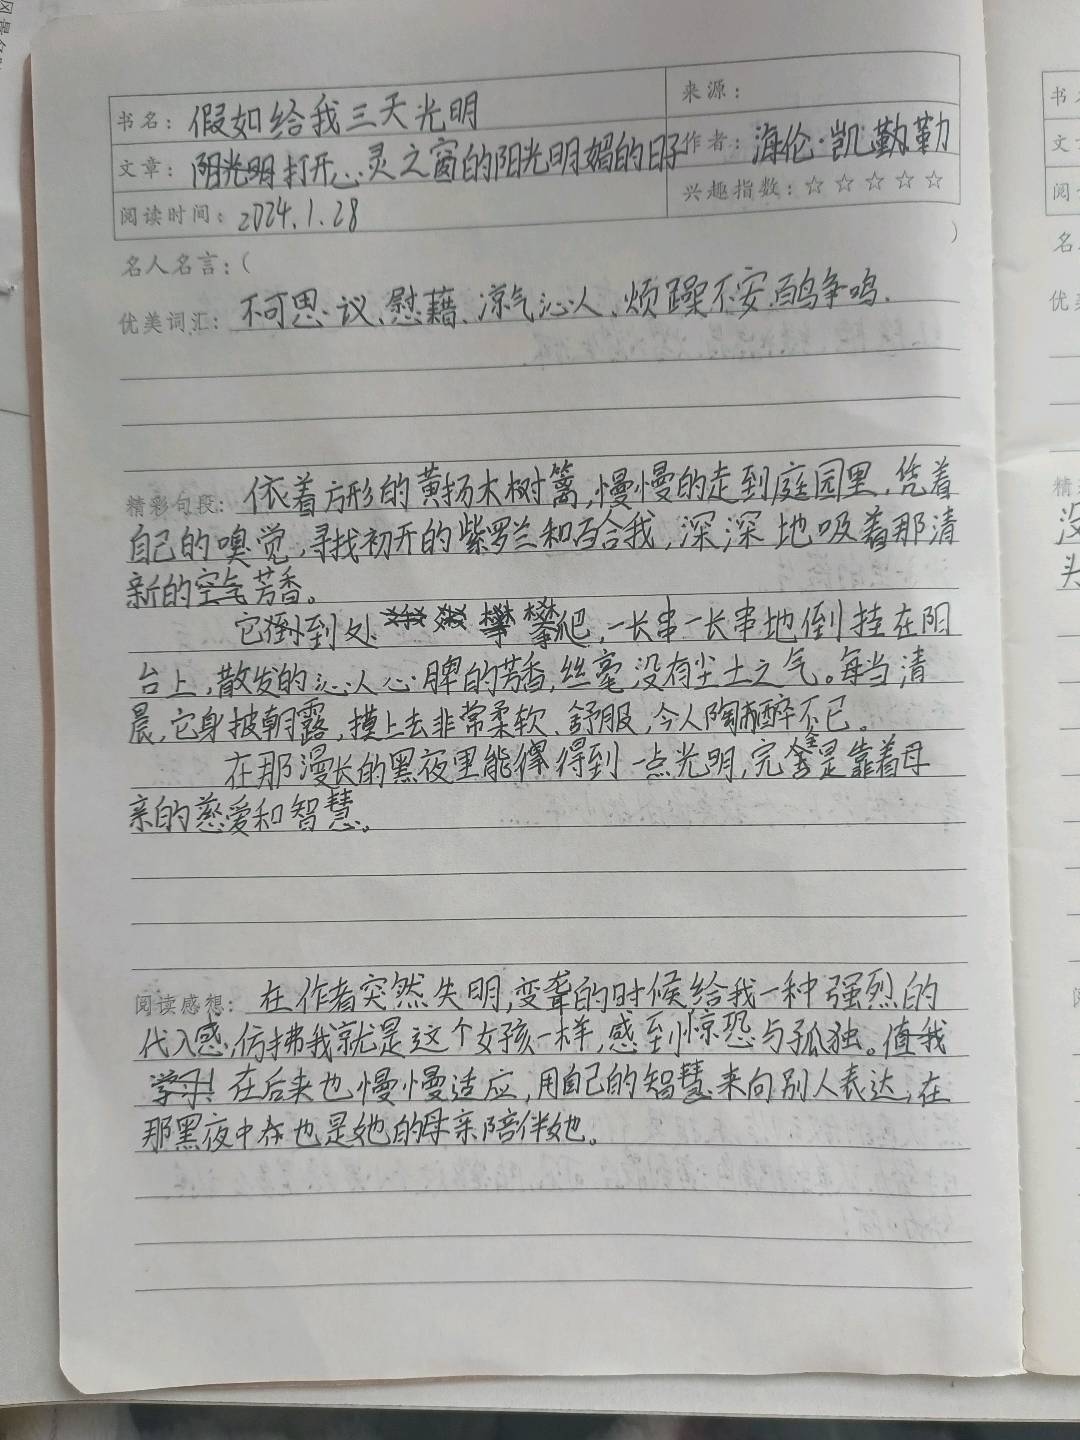 书名：假如给我三天光明
来源：
文章：阳光明打开心灵之窗的阳光明媚的日子
作者：海伦·凯勤勒
阅读时间：2024.1.28
兴趣指数：☆ ☆ ☆ ☆ ☆
名人名言：（ ）
优美词汇：不可思议、慰藉、凉气沁人、烦躁不安、百鸟争鸣、
精彩句段：依着方形的黄扬木树篱，慢慢的走到庭园里，凭着
自己的嗅觉，寻找初开的紫罗兰和百合我，深深地吸着那清
新的空气芳香。
它倒到处攀爬，一长串一长串地倒挂在阳
台上，散发的沁人心脾的芳香，丝毫没有尘土之气。每当清
晨，它身披朝露，摸上去非常柔软、舒服，今人陶醉不已。
在那漫长的黑夜里能得得到一点光明，完全是靠着母
亲的慈爱和智慧。
阅读感想：在作者突然失明，变聋的时候给我一种强烈的
代入感，仿拂我就是这个女孩一样，感到惊恐与孤独。值我
学习！在后来也慢慢适应，用自己的智慧来向别人表达，在
那黑夜中在也是她的母亲陪伴她。
书
文
阅
名
优美
精
没
头